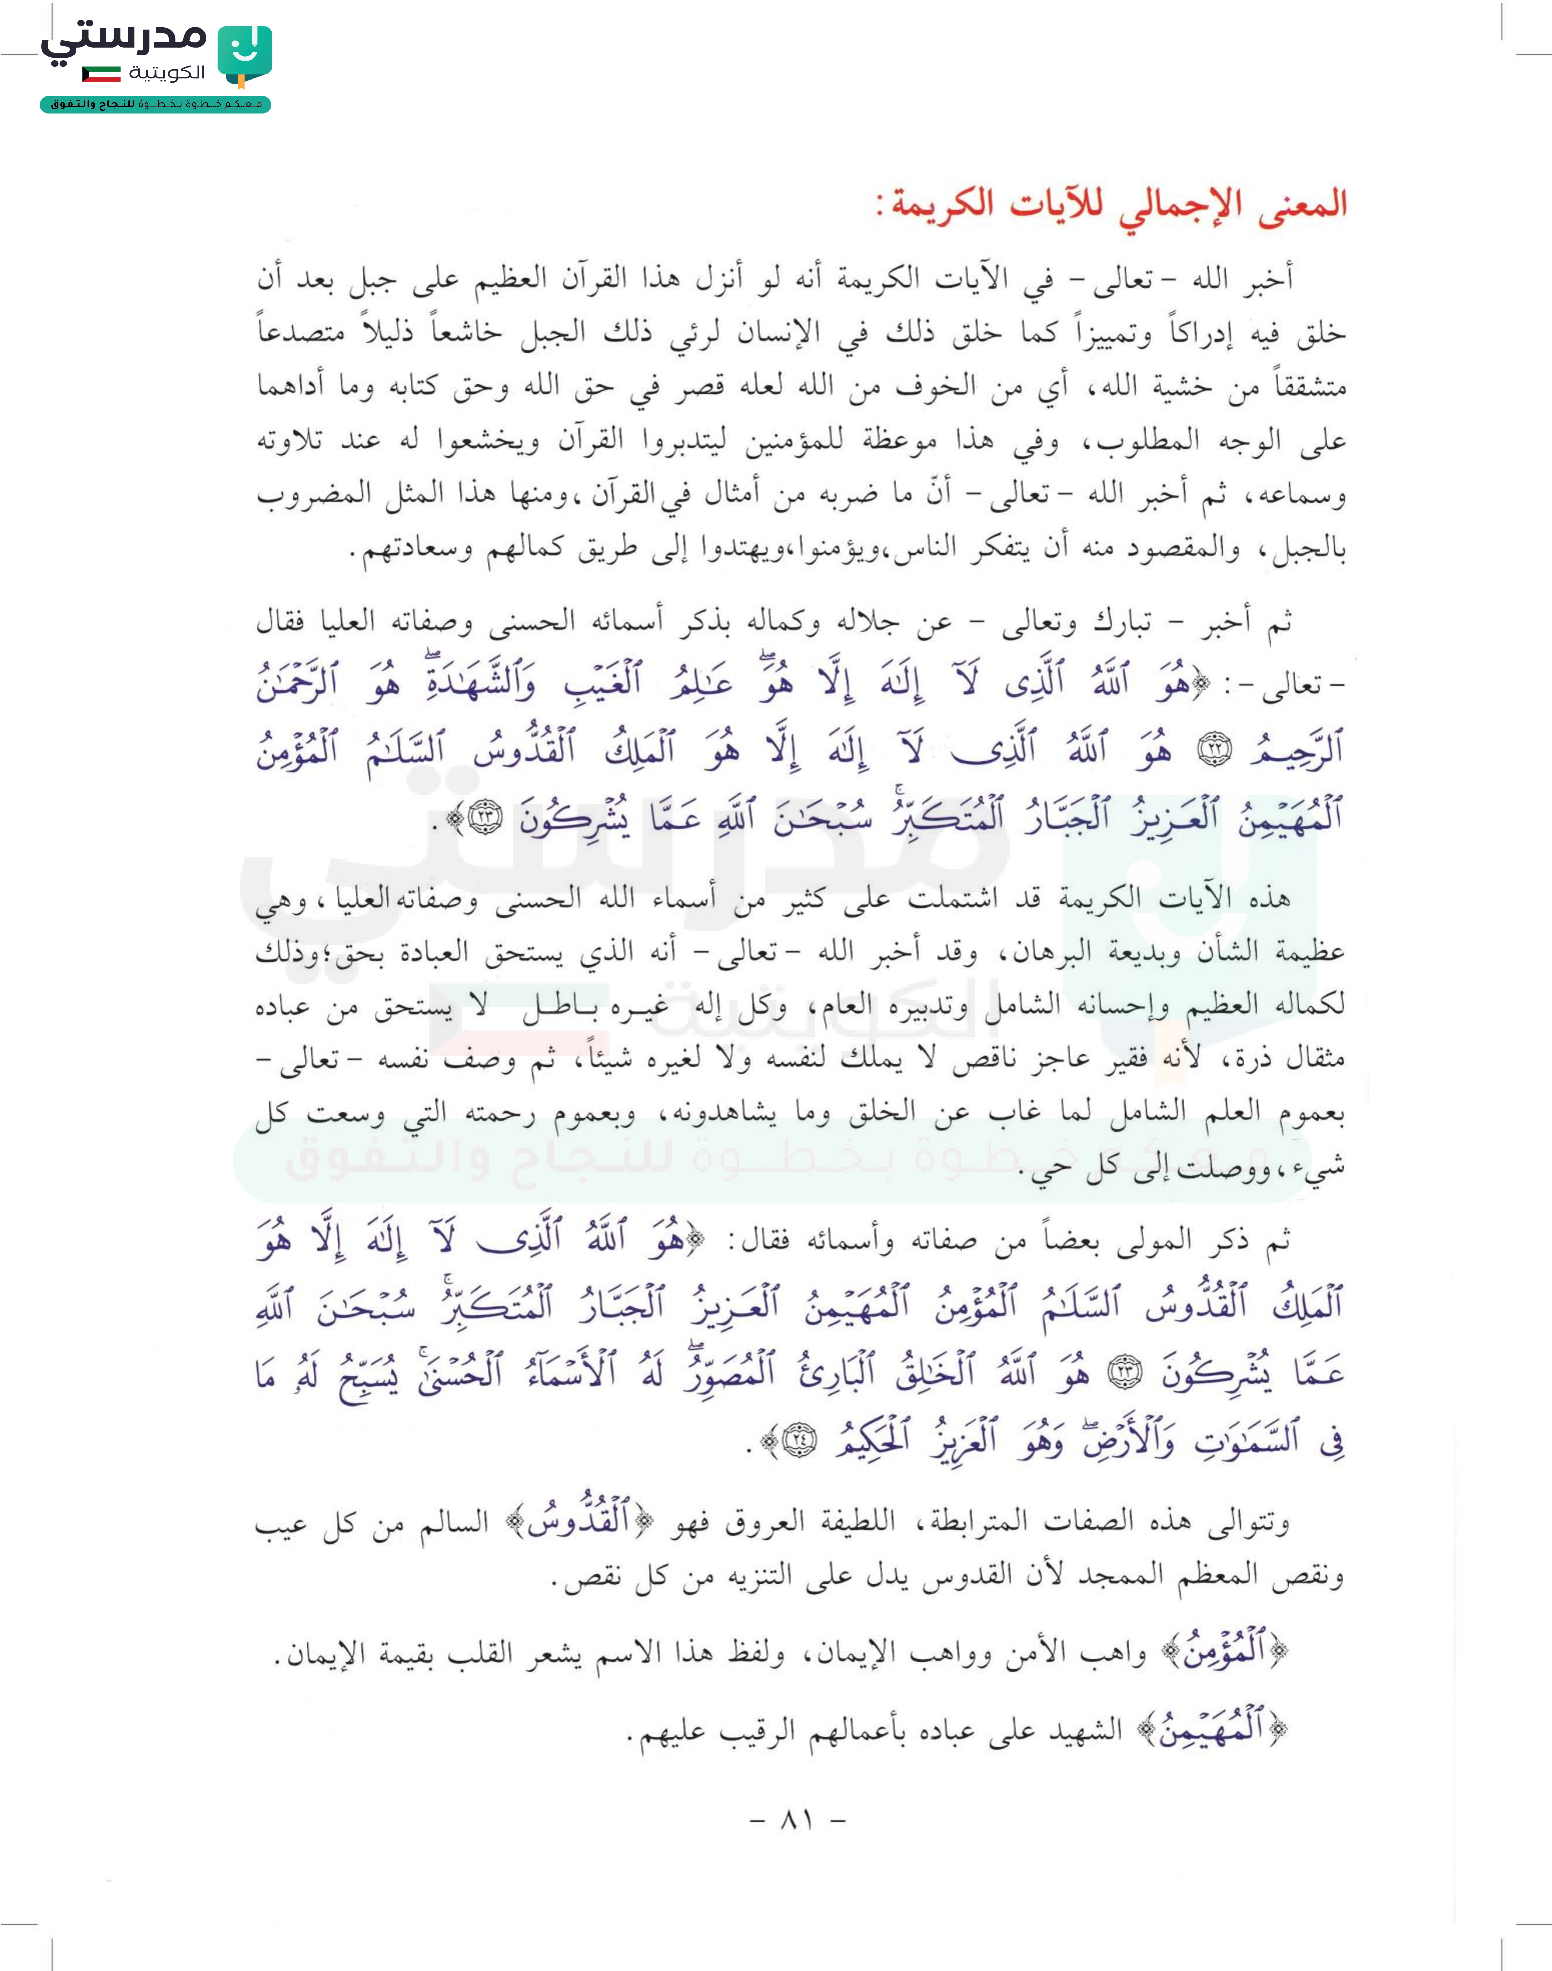 مدرستي
الكويتية
معكم خطوة بخطوة للنجاح والتفوق
المعنى الإجمالي للآيات الكريمة:
أخبر الله - تعالى - في الآيات الكريمة أنه لو أنزل هذا القرآن العظيم على جبل بعد أن
خلق فيه إدراكاً وتمييزاً كما خلق ذلك في الإنسان لرئي ذلك الجبل خاشعاً ذليلاً متصدعاً
متشققاً من خشية الله، أي من الخوف من الله لعله قصر في حق الله وحق كتابه وما أداهما
على الوجه المطلوب، وفي هذا موعظة للمؤمنين ليتدبروا القرآن ويخشعوا له عند تلاوته
وسماعه، ثم أخبر الله - تعالى - أنّ ما ضربه من أمثال في القرآن ،ومنها هذا المثل المضروب
بالجبل، والمقصود منه أن يتفكر الناس،ويؤمنوا،ويهتدوا إلى طريق كمالهم وسعادتهم.
ثم أخبر - تبارك وتعالى - عن جلاله وكماله بذكر أسمائه الحسنى وصفاته العليا فقال
- تعالى -: ﴿هُوَ ٱللَّهُ ٱلَّذِى لَآ إِلَٰهَ إِلَّا هُوَۖ عَٰلِمُ ٱلْغَيْبِ وَٱلشَّهَٰدَةِۖ هُوَ ٱلرَّحْمَٰنُ
ٱلرَّحِيمُ ٢٢ هُوَ ٱللَّهُ ٱلَّذِى لَآ إِلَٰهَ إِلَّا هُوَ ٱلْمَلِكُ ٱلْقُدُّوسُ ٱلسَّلَٰمُ ٱلْمُؤْمِنُ
ٱلْمُهَيْمِنُ ٱلْعَزِيزُ ٱلْجَبَّارُ ٱلْمُتَكَبِّرُۚ سُبْحَٰنَ ٱللَّهِ عَمَّا يُشْرِكُونَ ٢٣﴾.
هذه الآيات الكريمة قد اشتملت على كثير من أسماء الله الحسنى وصفاته العليا ، وهي
عظيمة الشأن وبديعة البرهان، وقد أخبر الله - تعالى - أنه الذي يستحق العبادة بحق؛وذلك
لكماله العظيم وإحسانه الشامل وتدبيره العام، وكل إله غيره باطل لا يستحق من عباده
مثقال ذرة، لأنه فقير عاجز ناقص لا يملك لنفسه ولا لغيره شيئاً، ثم وصف نفسه - تعالى -
بعموم العلم الشامل لما غاب عن الخلق وما يشاهدونه، وبعموم رحمته التي وسعت كل
شيء،ووصلت إلى كل حي.
ثم ذكر المولى بعضاً من صفاته وأسمائه فقال: ﴿هُوَ ٱللَّهُ ٱلَّذِى لَآ إِلَٰهَ إِلَّا هُوَ
ٱلْمَلِكُ ٱلْقُدُّوسُ ٱلسَّلَٰمُ ٱلْمُؤْمِنُ ٱلْمُهَيْمِنُ ٱلْعَزِيزُ ٱلْجَبَّارُ ٱلْمُتَكَبِّرُۚ سُبْحَٰنَ ٱللَّهِ
عَمَّا يُشْرِكُونَ ٢٣ هُوَ ٱللَّهُ ٱلْخَٰلِقُ ٱلْبَارِئُ ٱلْمُصَوِّرُۖ لَهُ ٱلْأَسْمَآءُ ٱلْحُسْنَىٰۚ يُسَبِّحُ لَهُۥ مَا
فِى ٱلسَّمَٰوَٰتِ وَٱلْأَرْضِۖ وَهُوَ ٱلْعَزِيزُ ٱلْحَكِيمُ ٢٤﴾.
وتتوالى هذه الصفات المترابطة، اللطيفة العروق فهو ﴿ٱلْقُدُّوسُ﴾ السالم من كل عيب
ونقص المعظم الممجد لأن القدوس يدل على التنزيه من كل نقص.
﴿ٱلْمُؤْمِنُ﴾ واهب الأمن وواهب الإيمان، ولفظ هذا الاسم يشعر القلب بقيمة الإيمان.
﴿ٱلْمُهَيْمِنُ﴾ الشهيد على عباده بأعمالهم الرقيب عليهم.
- ٨١ -